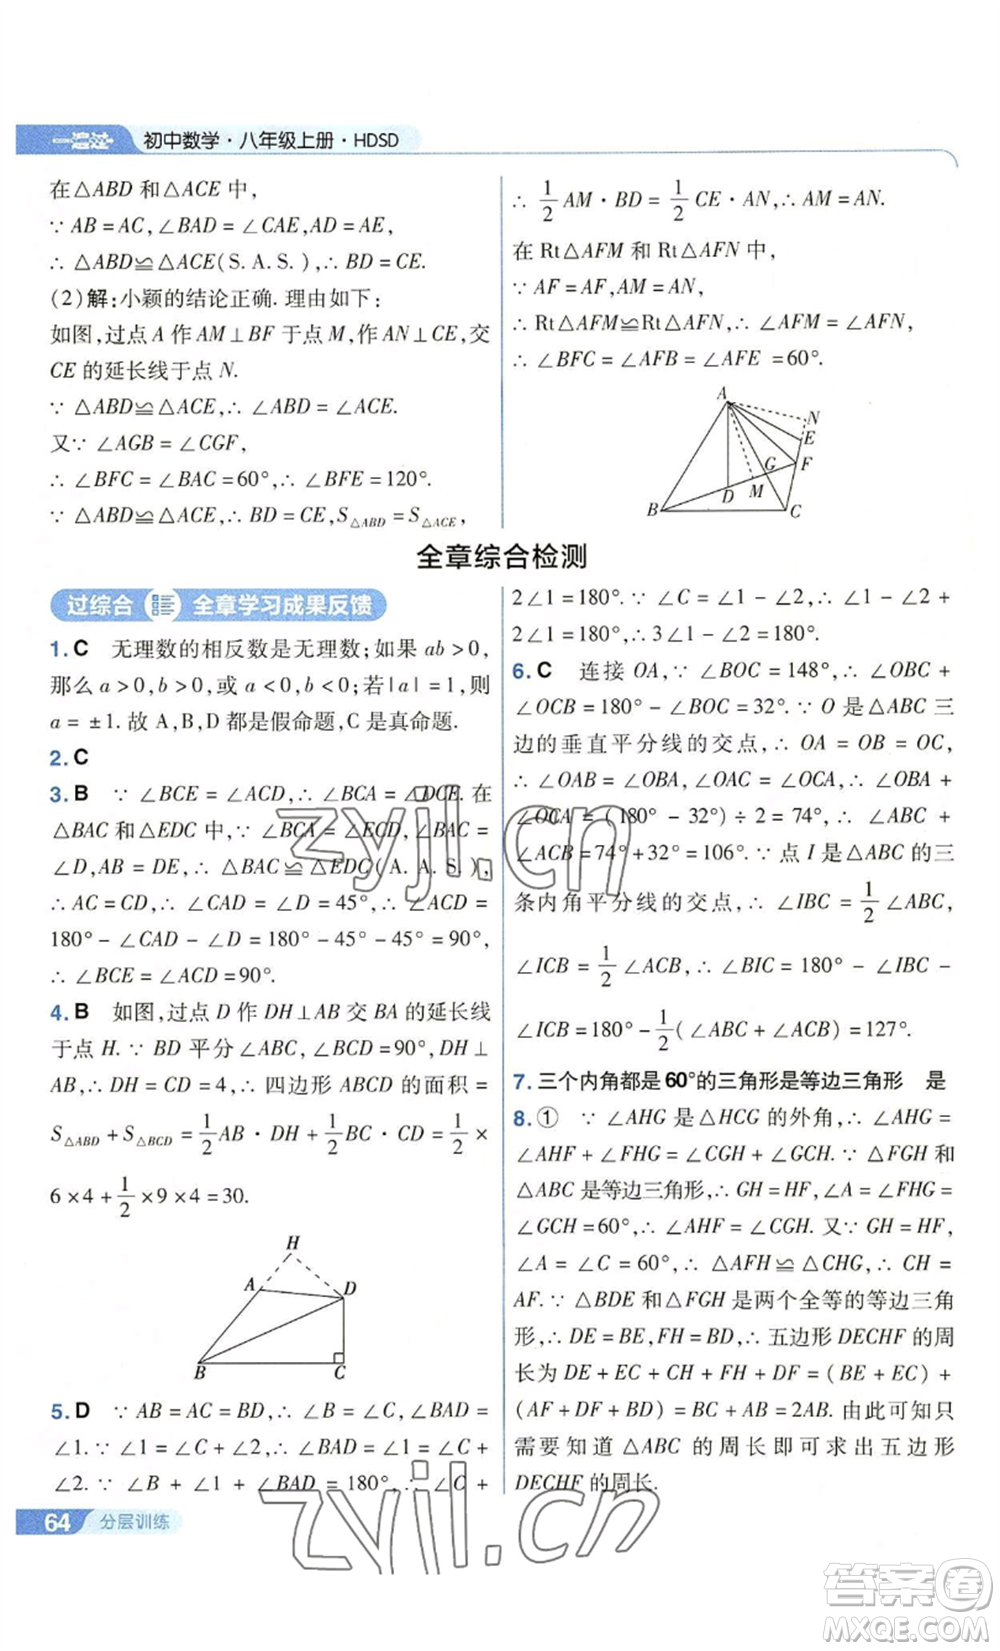 一遍过 初中数学·八年级上册·HDSD
在△ABD 和△ACE 中,
∵ AB = AC, ∠BAD = ∠CAE, AD = AE,
∴ △ABD≌△ACE(S. A. S. ), ∴ BD = CE.
(2)解:小颖的结论正确. 理由如下:
如图,过点 A 作 AM⊥BF 于点 M,作 AN⊥CE,交
CE 的延长线于点 N.
∵ △ABD≌△ACE, ∴ ∠ABD = ∠ACE.
又∵ ∠AGB = ∠CGF,
∴ ∠BFC = ∠BAC = 60°, ∴ ∠BFE = 120°.
∵ △ABD≌△ACE, ∴ BD = CE, S△ABD = S△ACE,
∴ 1/2 AM·BD = 1/2 CE·AN, ∴ AM = AN.
在 Rt△AFM 和 Rt△AFN 中,
∵ AF = AF, AM = AN,
∴ Rt△AFM≌Rt△AFN, ∴ ∠AFM = ∠AFN,
∴ ∠BFC = ∠AFB = ∠AFE = 60°.
A
N
E
F
G
D
M
B
C
全章综合检测
过综合 全章学习成果反馈
1. C 无理数的相反数是无理数;如果 ab > 0,
那么 a > 0, b > 0,或 a < 0, b < 0;若|a| = 1,则
a = ±1. 故 A,B,D 都是假命题,C 是真命题.
2. C
3. B ∵ ∠BCE = ∠ACD, ∴ ∠BCA = ∠DCE. 在
△BAC 和△EDC 中, ∵ ∠BCA = ∠ECD, ∠BAC =
∠D, AB = DE, ∴ △BAC≌△EDC(A. A. S. ),
∴ AC = CD, ∴ ∠CAD = ∠D = 45°, ∴ ∠ACD =
180° - ∠CAD - ∠D = 180° - 45° - 45° = 90°,
∴ ∠BCE = ∠ACD = 90°.
4. B 如图,过点 D 作 DH⊥AB 交 BA 的延长线
于点 H. ∵ BD 平分∠ABC, ∠BCD = 90°, DH⊥
AB, ∴ DH = CD = 4, ∴ 四边形 ABCD 的面积 =
S△ABD + S△BCD = 1/2 AB·DH + 1/2 BC·CD = 1/2 ×
6 × 4 + 1/2 × 9 × 4 = 30.
H
A
D
B
C
5. D ∵ AB = AC = BD, ∴ ∠B = ∠C, ∠BAD =
∠1. ∵ ∠1 = ∠C + ∠2, ∴ ∠BAD = ∠1 = ∠C +
∠2. ∵ ∠B + ∠1 + ∠BAD = 180°, ∴ ∠C +
2∠1 = 180°. ∵ ∠C = ∠1 - ∠2, ∴ ∠1 - ∠2 +
2∠1 = 180°, ∴ 3∠1 - ∠2 = 180°.
6. C 连接 OA, ∵ ∠BOC = 148°, ∴ ∠OBC +
∠OCB = 180° - ∠BOC = 32°. ∵ O 是△ABC 三
边的垂直平分线的交点, ∴ OA = OB = OC,
∴ ∠OAB = ∠OBA, ∠OAC = ∠OCA, ∴ ∠OBA +
∠OCA = (180° - 32°) ÷ 2 = 74°, ∴ ∠ABC +
∠ACB = 74° + 32° = 106°. ∵ 点 I 是△ABC 的三
条内角平分线的交点, ∴ ∠IBC = 1/2 ∠ABC,
∠ICB = 1/2 ∠ACB, ∴ ∠BIC = 180° - ∠IBC -
∠ICB = 180° - 1/2 (∠ABC + ∠ACB) = 127°.
7. 三个内角都是 60°的三角形是等边三角形 是
8. ① ∵ ∠AHG 是△HCG 的外角, ∴ ∠AHG =
∠AHF + ∠FHG = ∠CGH + ∠GCH. ∵ △FGH 和
△ABC 是等边三角形, ∴ GH = HF, ∠A = ∠FHG =
∠GCH = 60°, ∴ ∠AHF = ∠CGH. 又∵ GH = HF,
∠A = ∠C = 60°, ∴ △AFH≌△CHG, ∴ CH =
AF. ∵ △BDE 和△FGH 是两个全等的等边三角
形, ∴ DE = BE, FH = BD, ∴ 五边形 DECHF 的周
长为 DE + EC + CH + FH + DF = (BE + EC) +
(AF + DF + BD) = BC + AB = 2AB. 由此可知只
需要知道△ABC 的周长即可求出五边形
DECHF 的周长.
64 分层训练
zyjl.cn
zyjl.cn
答案卷
MXQE.COM